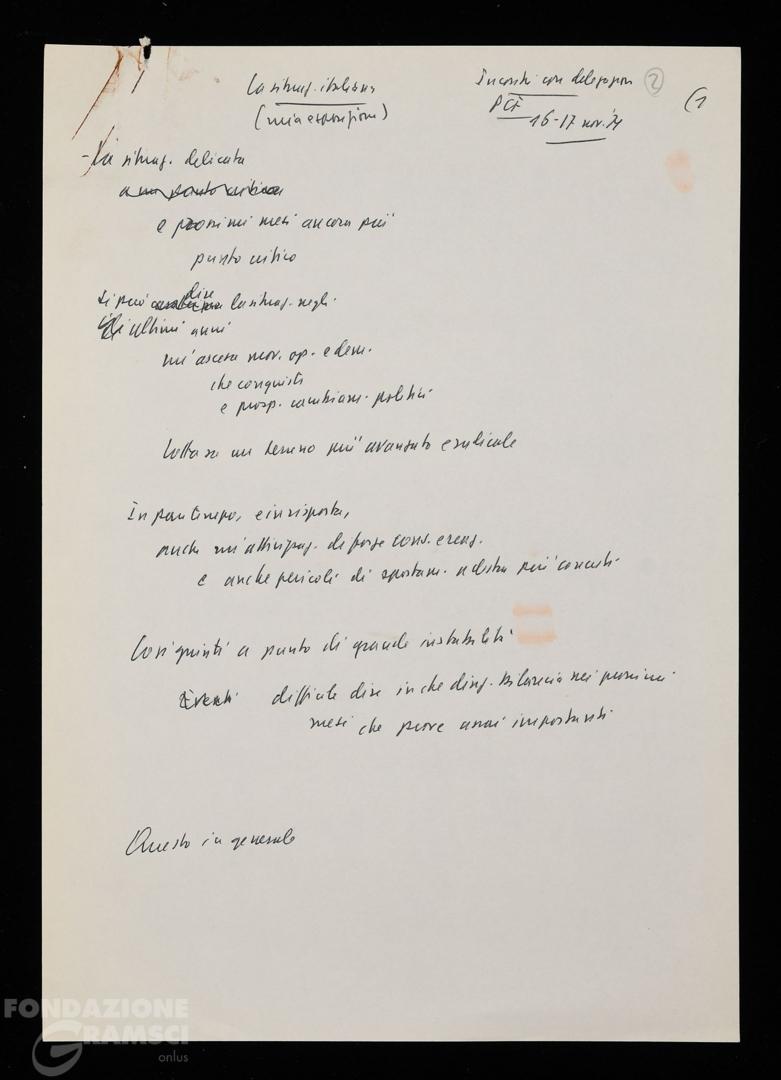 La situaz. italiana
(mia esposizione)
Incontri con delegazion ②
PCF
16-17 nov. '71
(1
- La situaz. delicata
a un punto critico
e prossimi mesi ancora più
punto critico
Si può dire la situaz. negli
ultimi anni
un'ascesa mov. op. e dem.
che conquiste
e prosp. cambiam. politici
Lotta su un terreno più avanzato e radicale
In pari tempo, e in risposta,
anche un'attivizzaz. di forze cons. e reaz.
e anche pericoli di spostam. a destra più concreti
Così quindi a punto di grande instabilità
Eventi difficile dire in che direz. bilancia nei prossimi
mesi che prove assai importanti
Questo in generale
FONDAZIONE
GRAMSCI
onlus